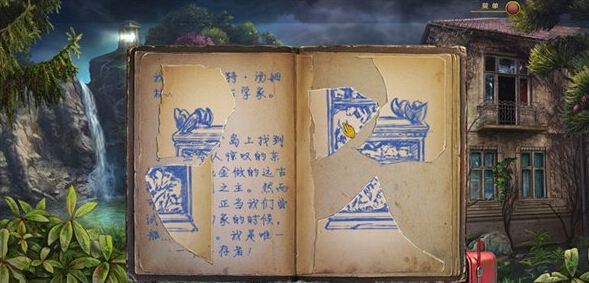 菜单
特·汤姆
学家。
岛上找到
人惊叹的东
金做的远古
之主。然而
正当我们尝
试
家的时候，
我是唯一
存者！